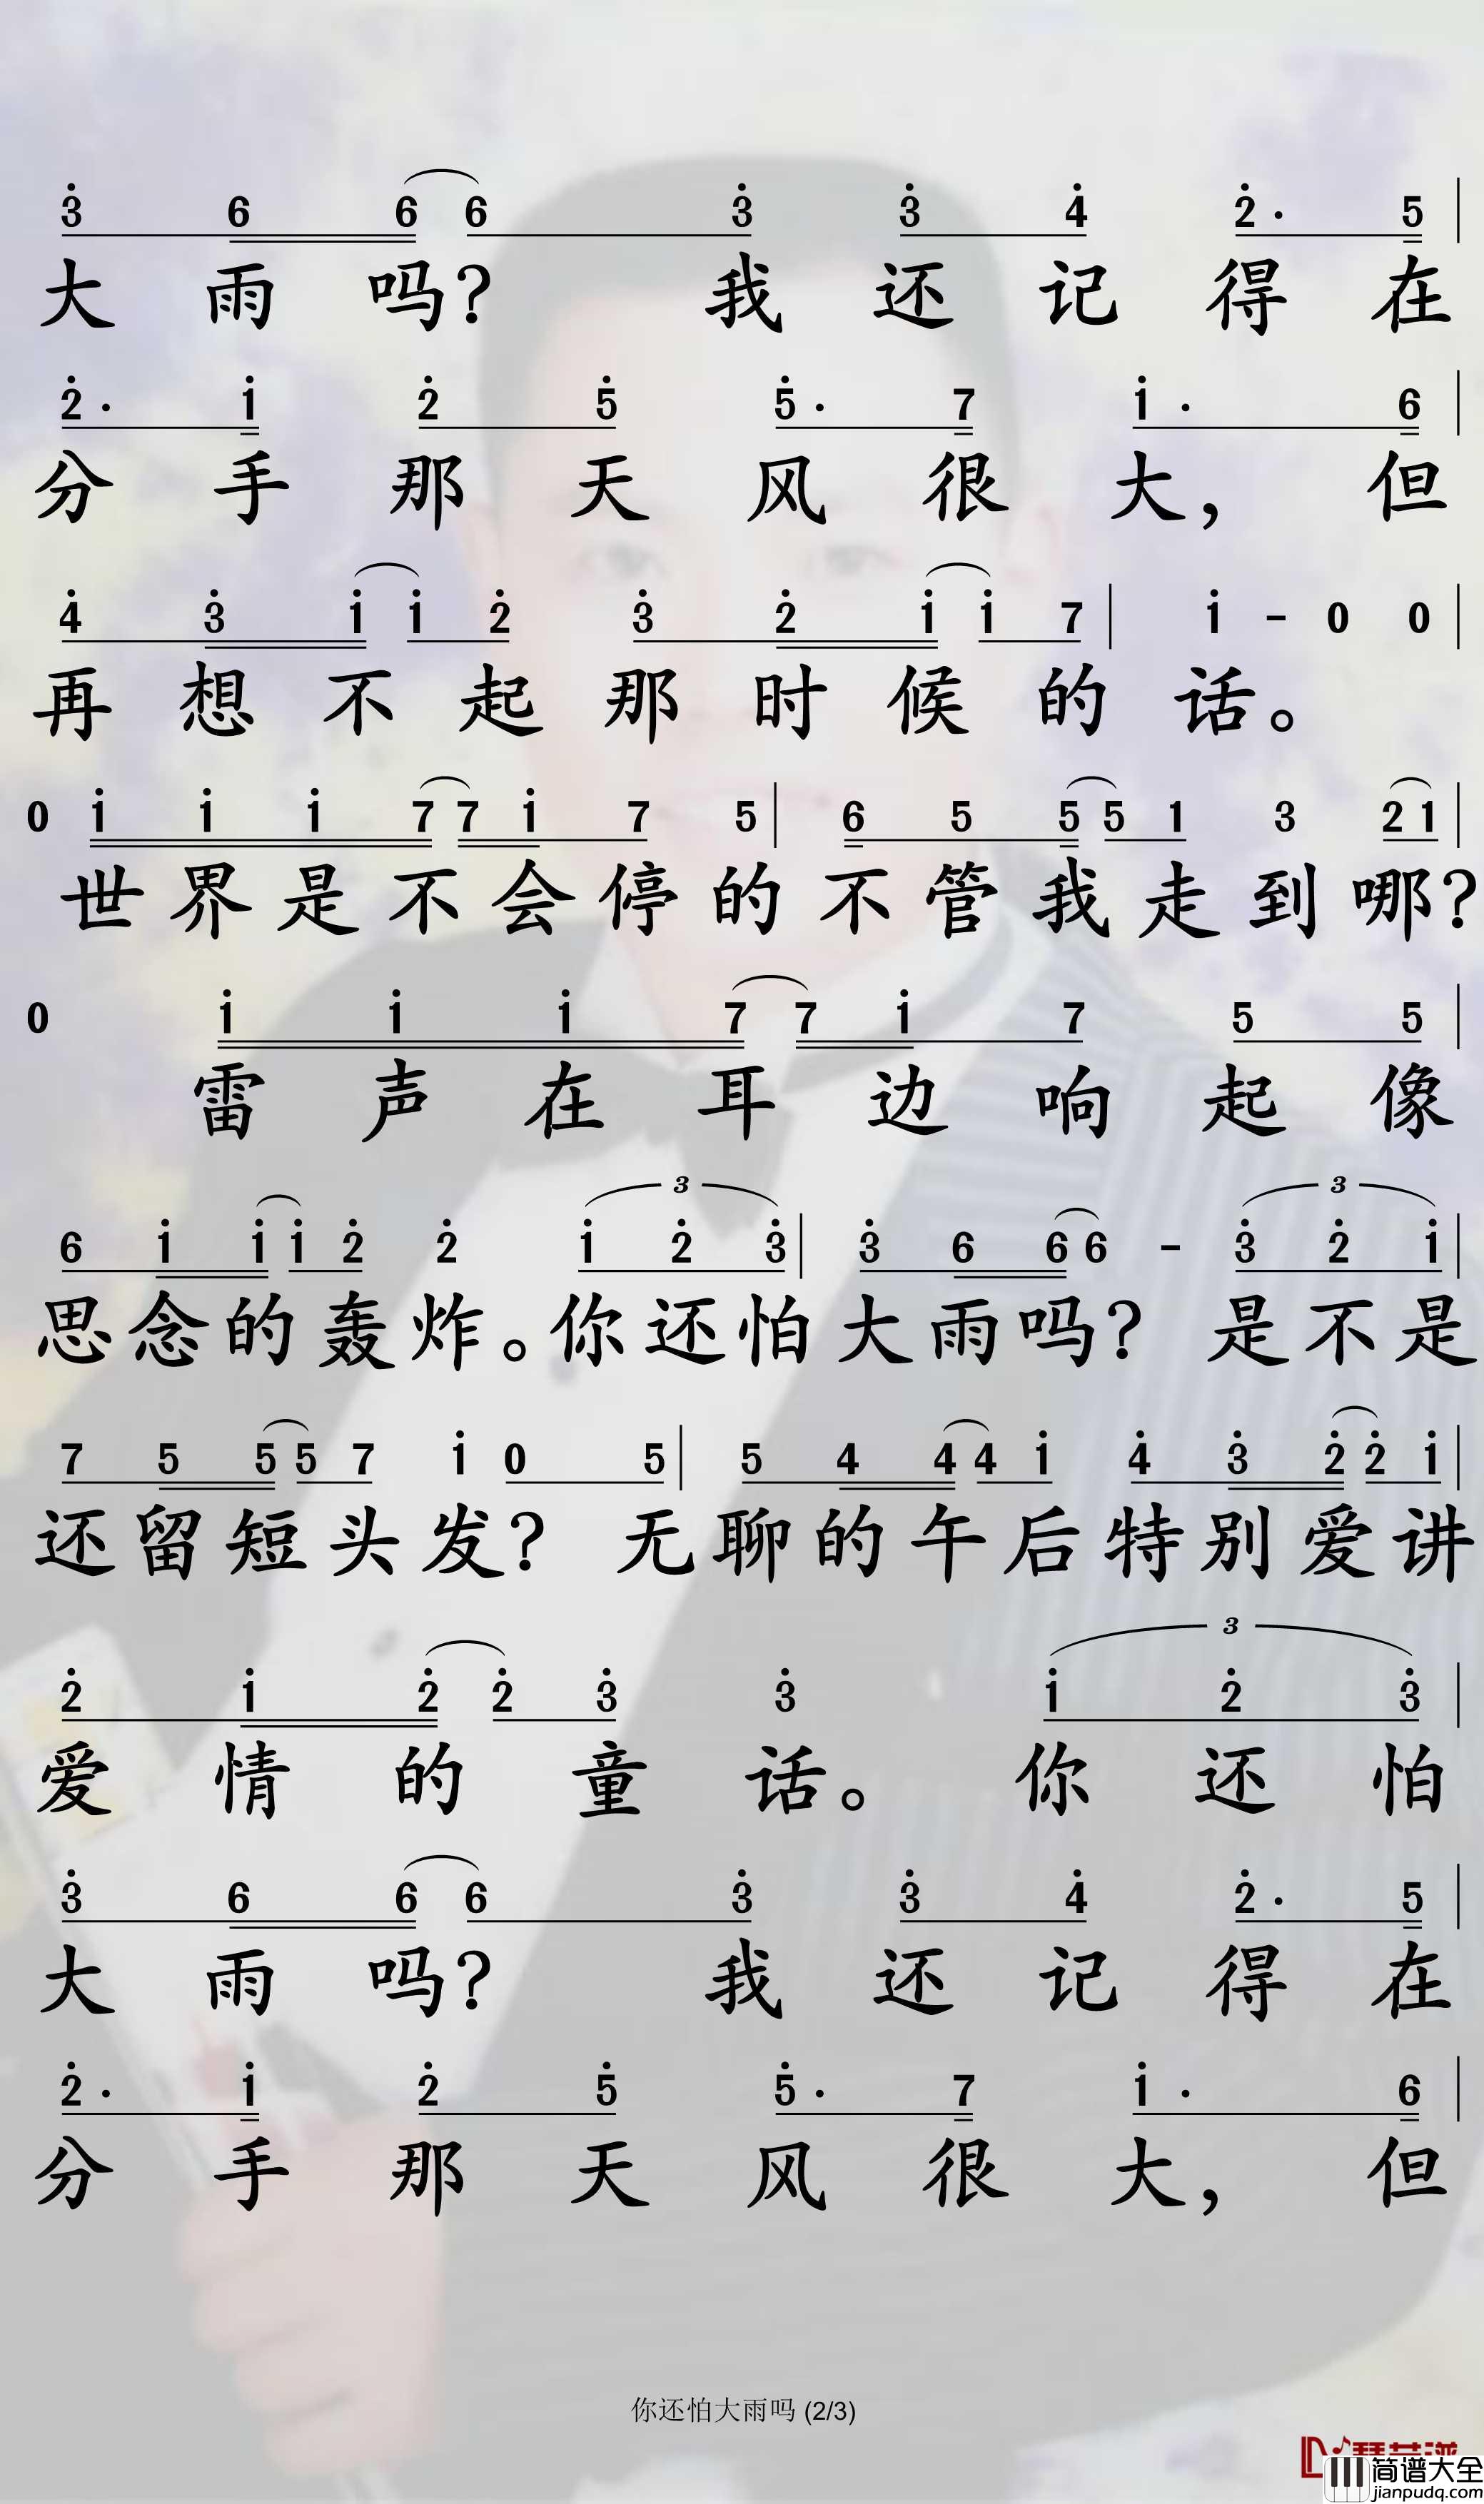 3 6 6 6 3 3 4 2· 5
大 雨 吗? 我 还 记 得 在
2· 1 2 5 5· 7 1· 6
分 手 那 天 风 很 大, 但
4 3 1 1 2 3 2 1 1 7 1 - 0 0
再 想 不 起 那 时 候 的 话。
0 1 1 1 7 7 1 7 5 6 5 5 5 1 3 2 1
世 界 是 不 会 停 的 不 管 我 走 到 哪?
0 1 1 1 7 7 1 7 5 5
雷 声 在 耳 边 响 起 像
3 3
6 1 1 1 2 2 1 2 3 3 6 6 6 - 3 2 1
思 念 的 轰 炸。你 还 怕 大 雨 吗? 是 不 是
7 5 5 5 7 1 0 5 5 4 4 4 1 4 3 2 2 1
还 留 短 头 发? 无 聊 的 午 后 特 别 爱 讲
3
2 1 2 2 3 3 1 2 3
爱 情 的 童 话。 你 还 怕
3 6 6 6 3 3 4 2· 5
大 雨 吗? 我 还 记 得 在
2· 1 2 5 5· 7 1· 6
分 手 那 天 风 很 大, 但
你还怕大雨吗 (2/3)
简谱大全
jianpudq.com